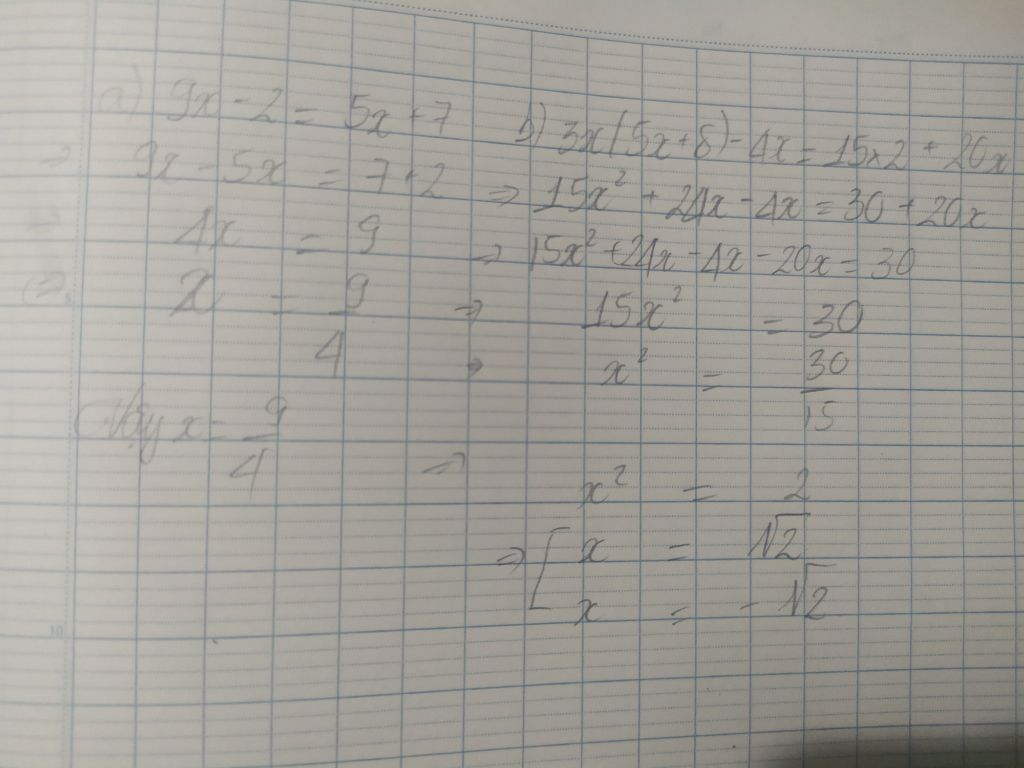 a) 9x - 2 = 5x + 7
⇒ 9x - 5x = 7 + 2
⇒ 4x = 9
⇒ x = 9/4
Vậy x = 9/4
b) 3x(5x + 8) - 4x = 15 x 2 + 20x
⇒ 15x² + 24x - 4x = 30 + 20x
⇒ 15x² + 24x - 4x - 20x = 30
⇒ 15x² = 30
x² = 30/15
⇒ x² = 2
⇒ [ x = √2
x = -√2